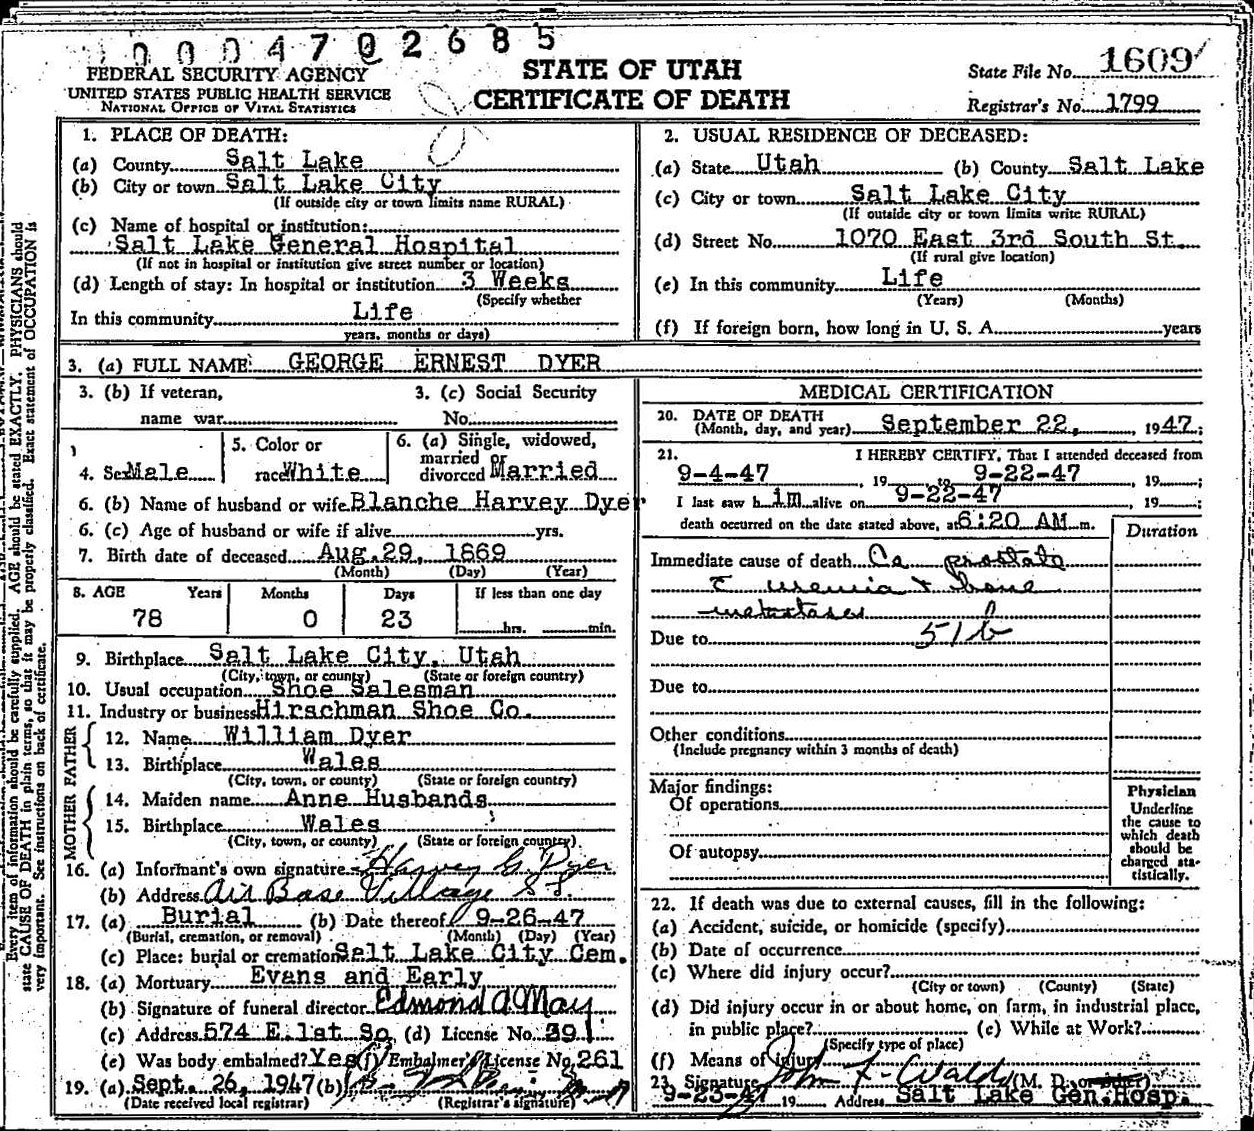 0004702685
FEDERAL SECURITY AGENCY
UNITED STATES PUBLIC HEALTH SERVICE
NATIONAL OFFICE OF VITAL STATISTICS
STATE OF UTAH
CERTIFICATE OF DEATH
State File No. 1609
Registrar's No. 1799
1. PLACE OF DEATH:
(a) County Salt Lake
(b) City or town Salt Lake City
(If outside city or town limits name RURAL)
(c) Name of hospital or institution:
Salt Lake General Hospital
(If not in hospital or institution give street number or location)
(d) Length of stay: In hospital or institution 3 Weeks
(Specify whether
In this community Life
years, months or days)
2. USUAL RESIDENCE OF DECEASED:
(a) State Utah (b) County Salt Lake
(c) City or town Salt Lake City
(If outside city or town limits write RURAL)
(d) Street No. 1070 East 3rd South St.
(If rural give location)
(e) In this community Life
(Years) (Months)
(f) If foreign born, how long in U. S. A. years
3. (a) FULL NAME: GEORGE ERNEST DYER
3. (b) If veteran, 3. (c) Social Security
name war No.
4. Sex Male 5. Color or race White 6. (a) Single, widowed, married or divorced Married
6. (b) Name of husband or wife Blanche Harvey Dyer
6. (c) Age of husband or wife if alive yrs.
7. Birth date of deceased Aug. 29, 1869
(Month) (Day) (Year)
8. AGE Years Months Days If less than one day
78 0 23 hrs. min.
9. Birthplace Salt Lake City, Utah
(City, town, or county) (State or foreign country)
10. Usual occupation Shoe Salesman
11. Industry or business Hirschman Shoe Co.
FATHER
12. Name William Dyer
13. Birthplace Wales
(City, town, or county) (State or foreign country)
MOTHER
14. Maiden name Anne Husbands
15. Birthplace Wales
(City, town, or county) (State or foreign country)
16. (a) Informant's own signature Harvey G. Dyer
(b) Address Air Base Village S L
17. (a) Burial (b) Date thereof 9-26-47
(Burial, cremation, or removal) (Month) (Day) (Year)
(c) Place: burial or cremation Salt Lake City Cem.
18. (a) Mortuary Evans and Early
(b) Signature of funeral director Edmond A May
(c) Address 574 E. 1st So. (d) License No. 391
(e) Was body embalmed? Yes (f) Embalmer's License No. 261
19. (a) Sept. 26, 1947 (b)
(Date received local registrar) (Registrar's signature)
MEDICAL CERTIFICATION
20. DATE OF DEATH
(Month, day, and year) September 22, 1947;
21. I HEREBY CERTIFY, That I attended deceased from
9-4-47, 19 to 9-22-47, 19 ;
I last saw him alive on 9-22-47, 19 ;
death occurred on the date stated above, at 6:20 AM m.
Duration
Immediate cause of death Ca prostate
c̄ uremia + bone
metastases
Due to 51b
Due to
Other conditions
(Include pregnancy within 3 months of death)
Major findings:
Of operations
Of autopsy
Physician
Underline
the cause to
which death
should be
charged sta-
tistically.
22. If death was due to external causes, fill in the following:
(a) Accident, suicide, or homicide (specify)
(b) Date of occurrence
(c) Where did injury occur?
(City or town) (County) (State)
(d) Did injury occur in or about home, on farm, in industrial place,
in public place? (e) While at Work?
(Specify type of place)
(f) Means of injury
23. Signature John F. Waldo (M. D. or other)
9-23-47 19 Address Salt Lake Gen. Hosp.
Every item of information should be carefully supplied. AGE should be stated EXACTLY. PHYSICIANS should
state CAUSE OF DEATH in plain terms, so that it may be properly classified. Exact statement of OCCUPATION is
very important. See instructions on back of certificate.